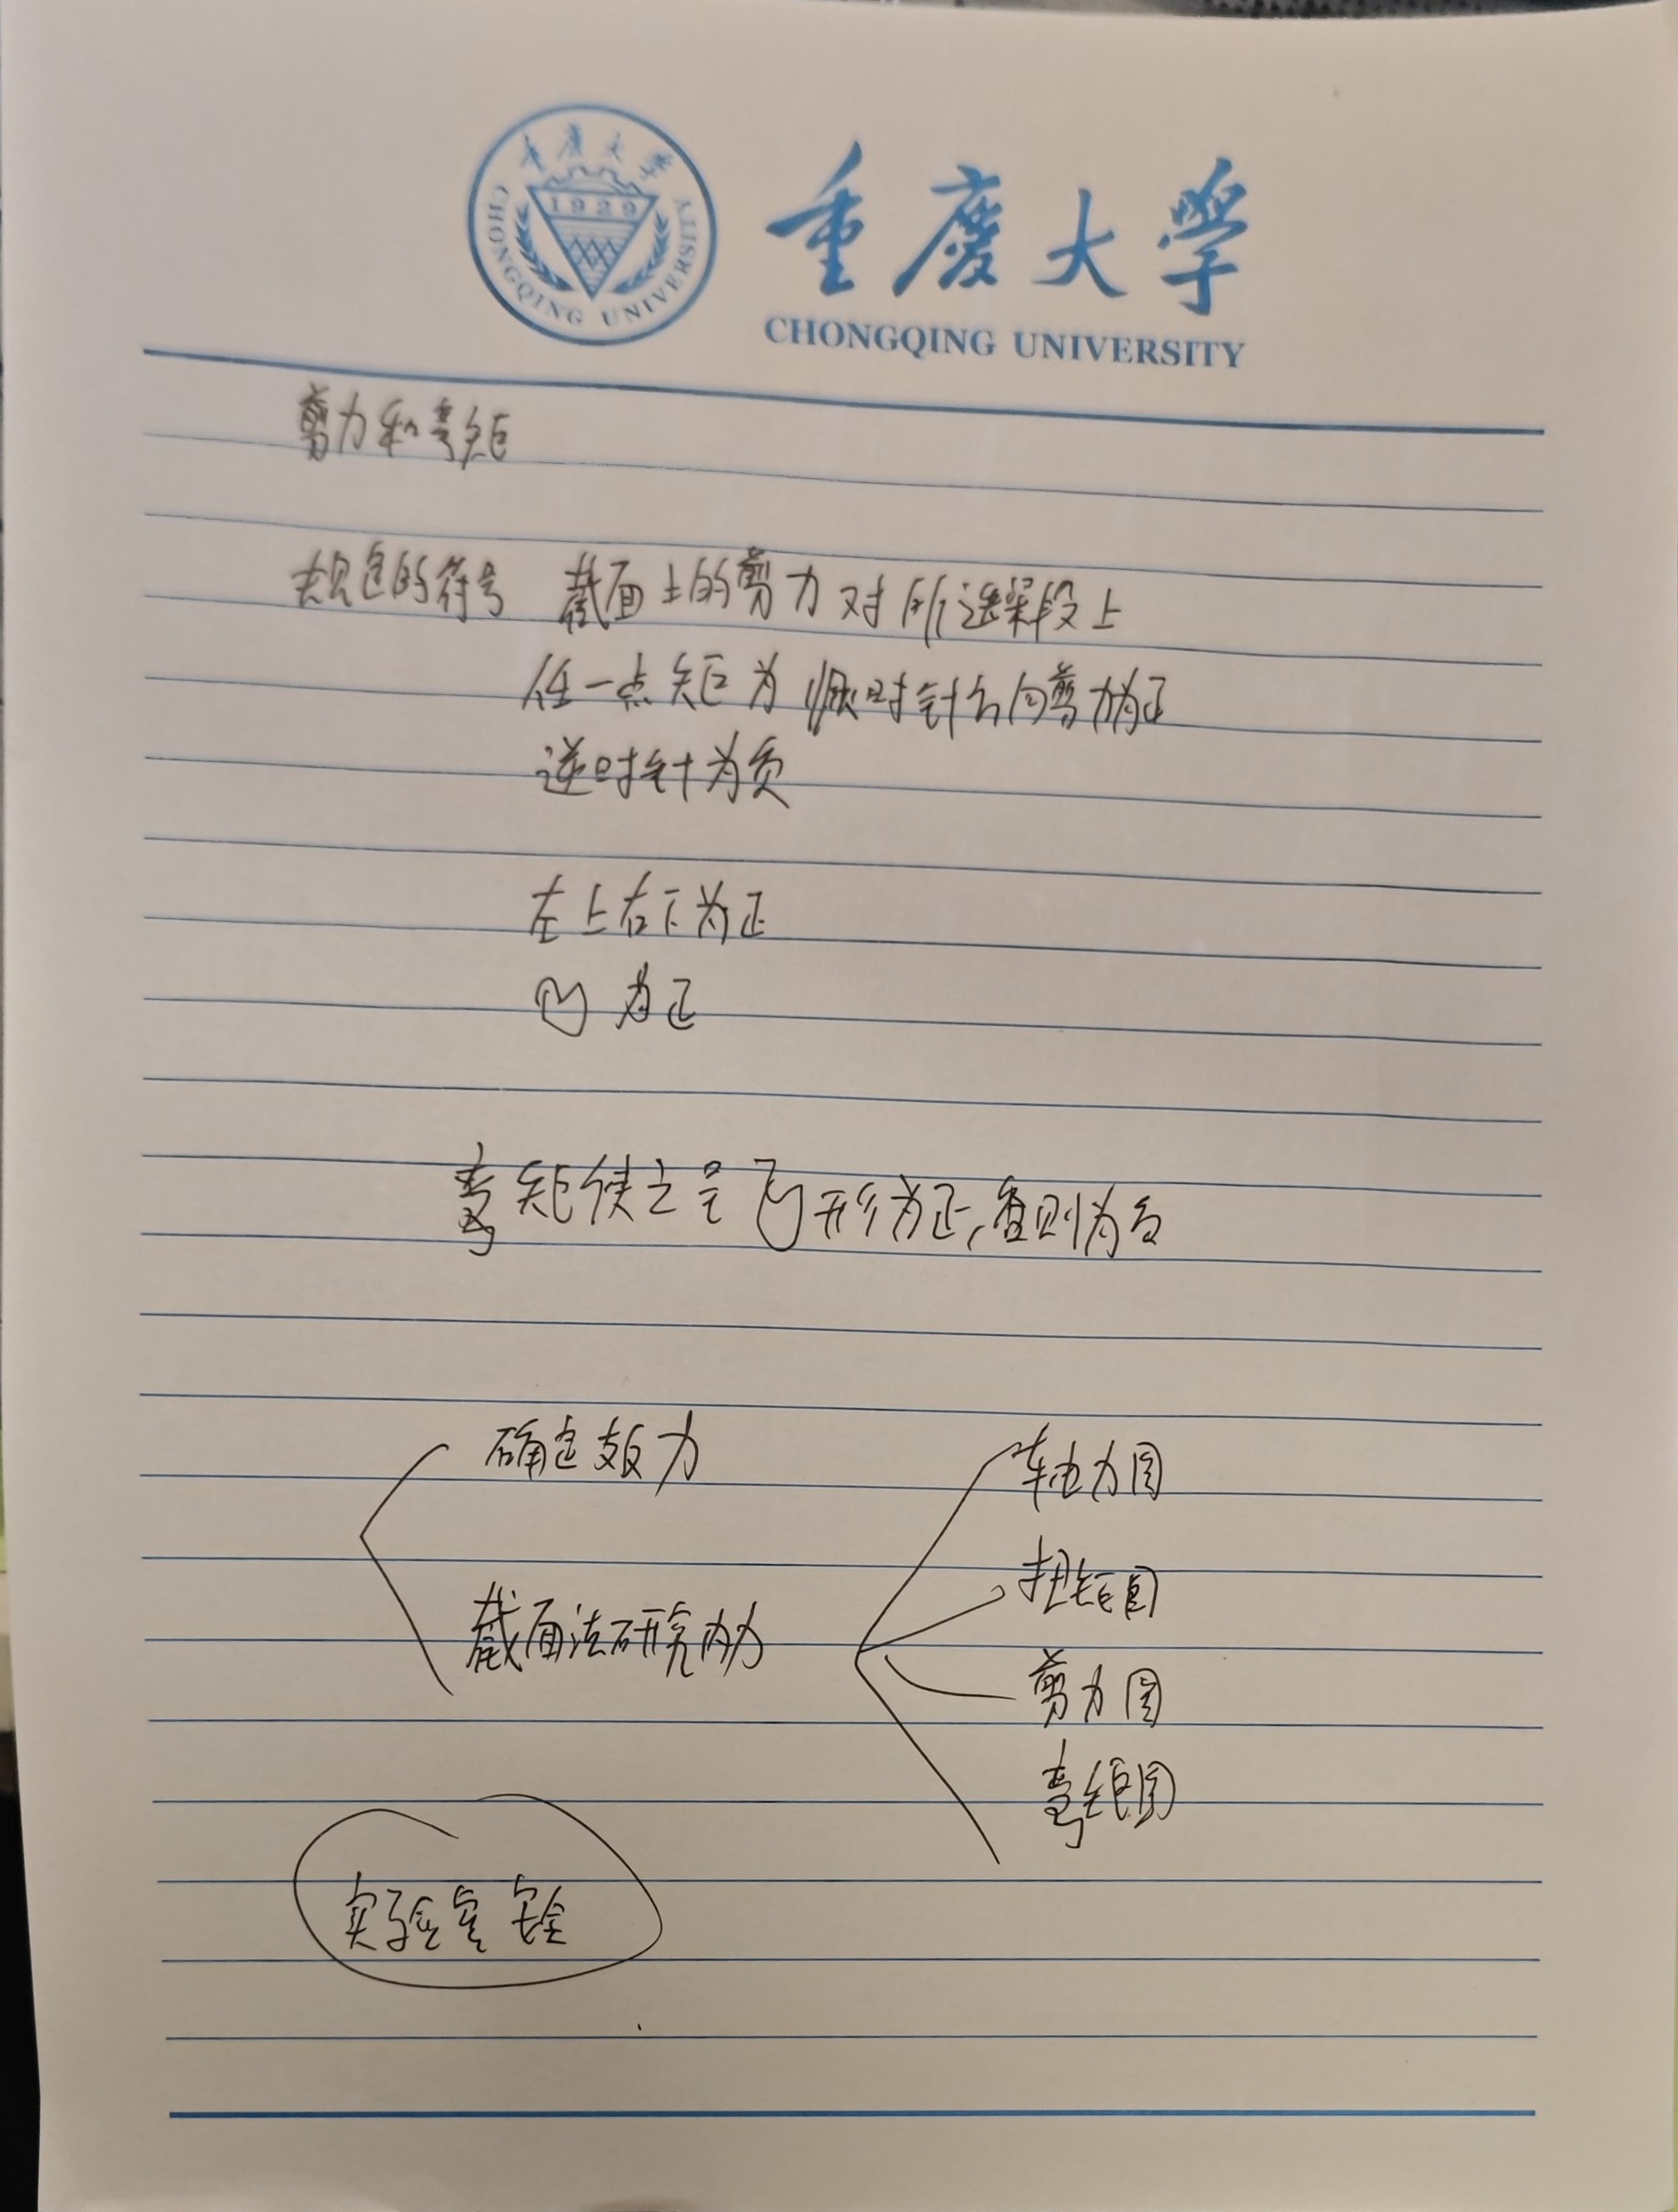 重庆大学
CHONGQING UNIVERSITY
1929
重慶大學
CHONGQING UNIVERSITY
剪力和弯矩
规定的符号 截面上的剪力对所选梁段上
任一点矩为顺时针方向剪力为正
逆时针为负
左上右下为正
凹为正
弯矩使之呈凹形为正,否则为负
确定支反力
截面法研究内力
轴力图
扭矩图
剪力图
弯矩图
实验室安全